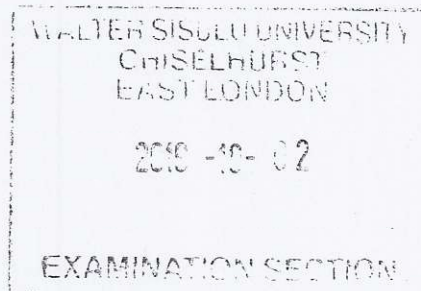 WALTER SISULU UNIVERSITY
CHISELHURST
EAST LONDON
-10- 02
EXAMINATION SECTION